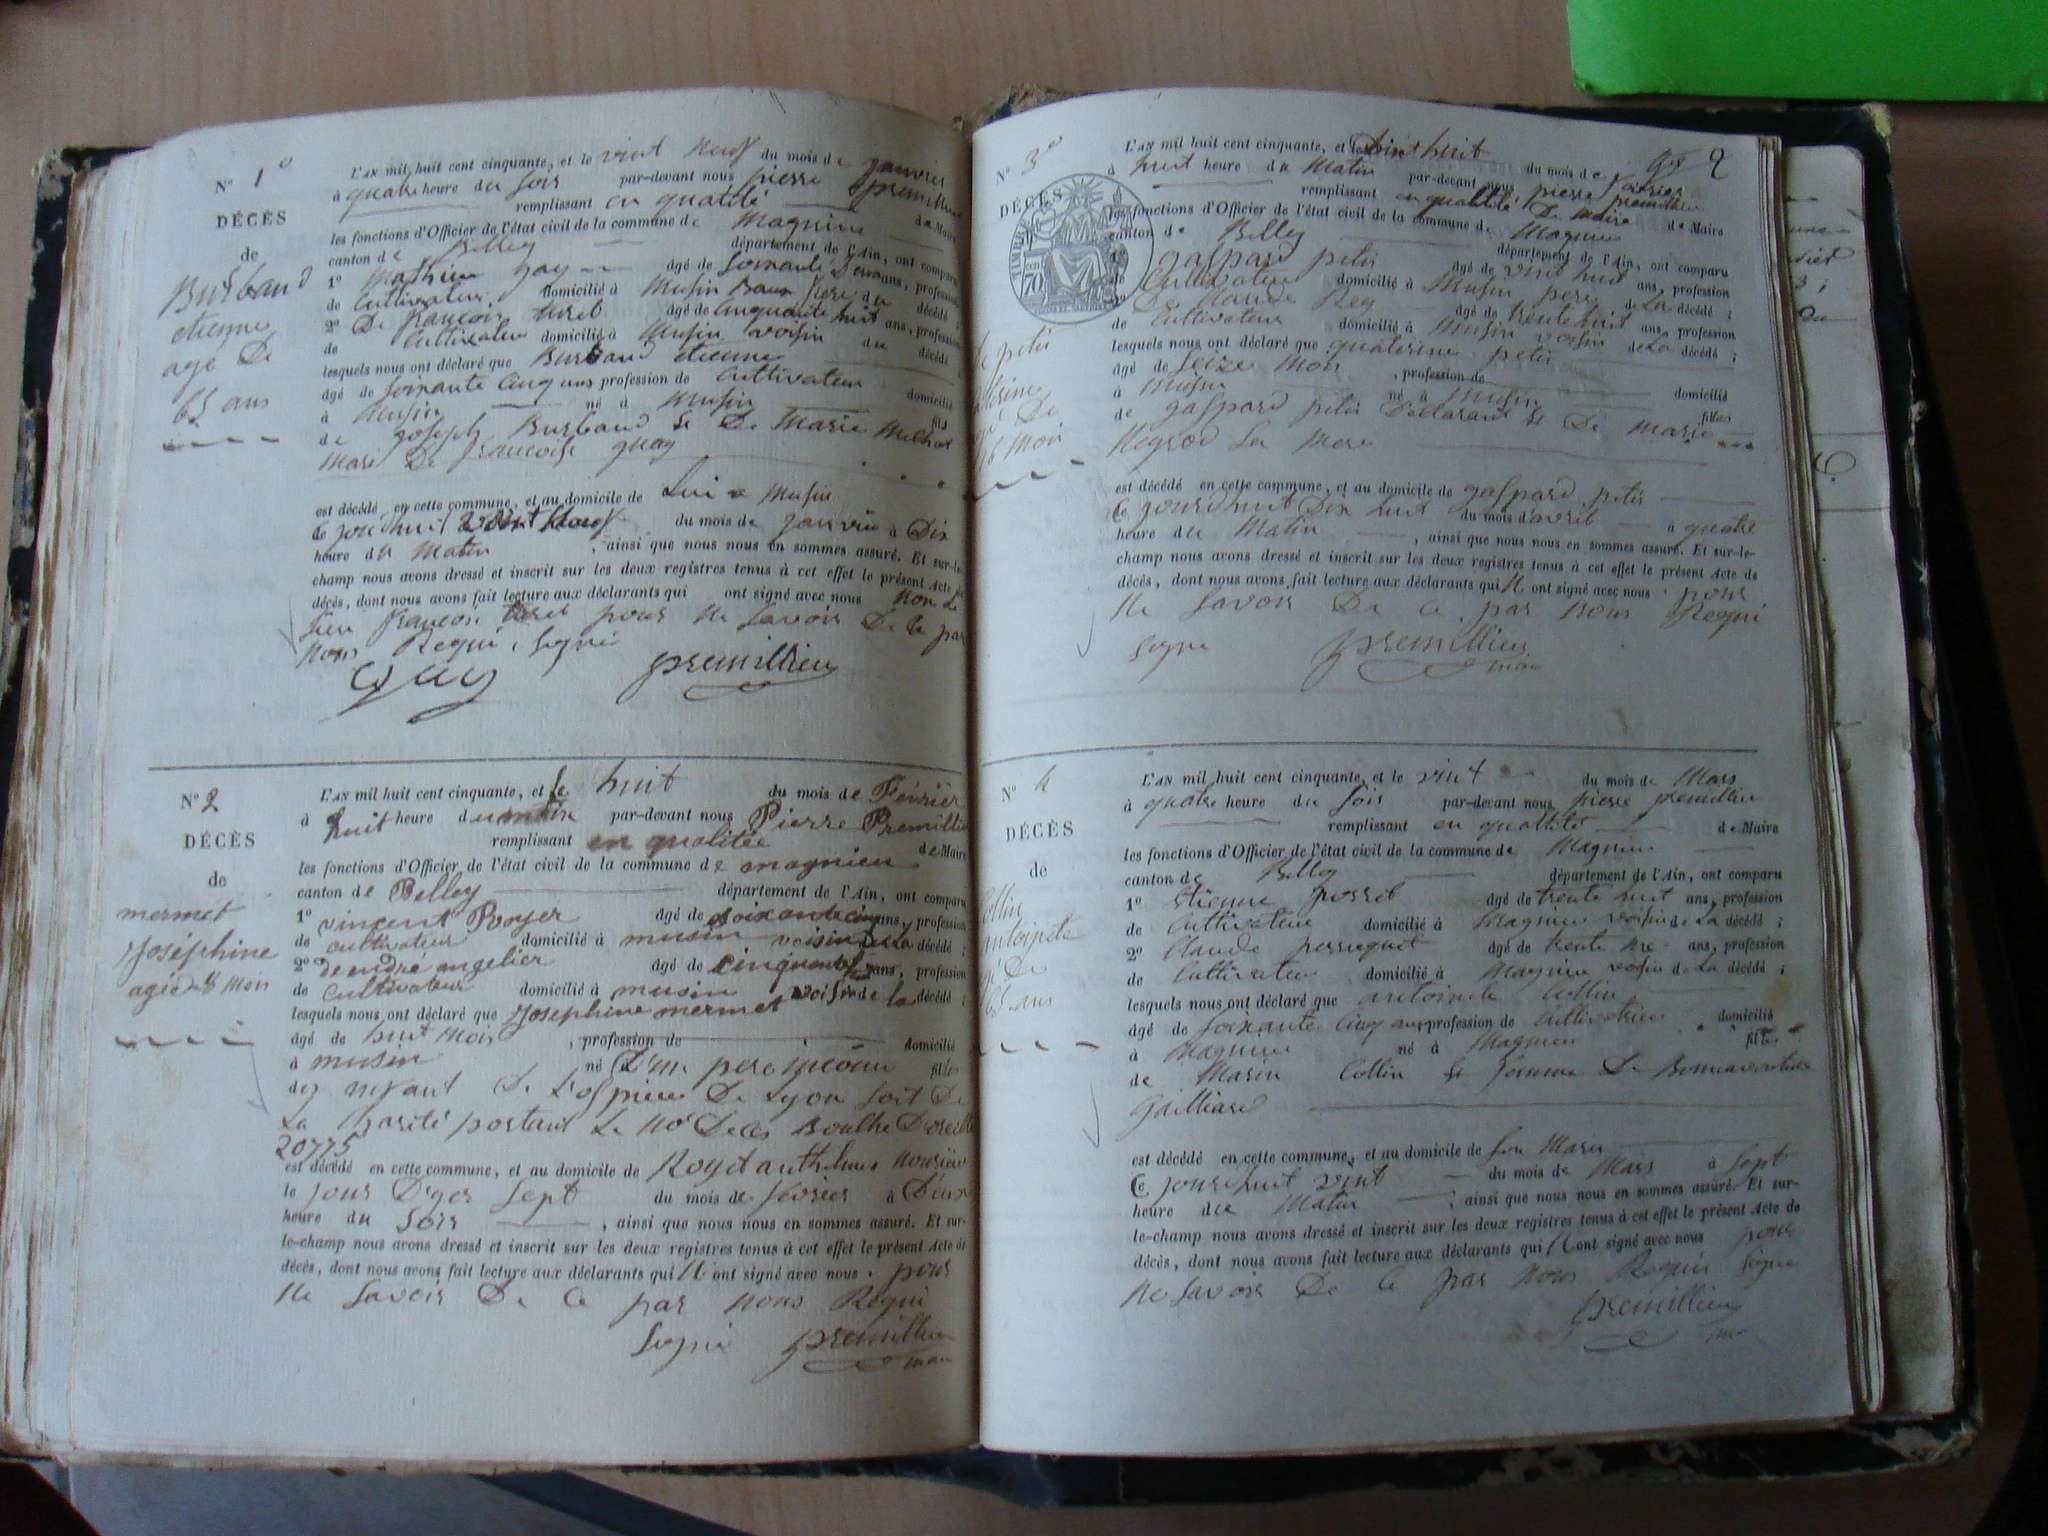 N° 1°
DÉCÈS
de
Burbaud
etienne
agé De
65 ans
L'AN mil huit cent cinquante, et le vint neuf du mois de janvier
à quatre heure du soir par-devant nous pierre premillieu
remplissant en qualité de Maire
les fonctions d'Officier de l'état civil de la commune de Magnieu
canton de Belley département de l'Ain, ont comparu
1° Mathieu gay agé de soixante ans, profession
de Cultivateur domicilié à Musin du décédé ;
2° De françois agé de cinquante huit ans, profession
de Cultivateu domicilié à Musin voisin du décédé
lesquels nous ont déclaré que Burbaud etienne
âgé de soixante cinq ans profession de Cultivateur domicilié
à Musin né à Musin fils
de joseph Burbaud & De Marie
Mari De francoise guay
est décédé en cette commune, et au domicile de Lui a Musin
Ce jourdhuit vint neuf du mois de janvie à Dix
heure du Matin, ainsi que nous nous en sommes assuré. Et sur-le-
champ nous avons dressé et inscrit sur les deux registres tenus à cet effet le présent Acte de
décès, dont nous avons fait lecture aux déclarants qui ont signé avec nous Non Le
sieu françois pour ne savoir De Ce par
nous Requi, signé
Guay premillieu
N° 2
DÉCÈS
de
mermet
Joséphine
agée de 8 Mois
L'AN mil huit cent cinquante, et le huit du mois de Février
à huit heure du matin par-devant nous Pierre Premillieu
remplissant en qualitée de Maire
les fonctions d'Officier de l'état civil de la commune de magnieu
canton de Belley département de l'Ain, ont comparu
1° vincent Royer agé de soixante cinq ans, profession
de cultivateur domicilié à musin voisin de La décédé ;
2° de andré angelier agé de cinquante ans, profession
de cultivateur domicilié à musin voisin de la décédé ;
lesquels nous ont déclaré que Joséphine mermet
âgé de huit Mois, profession de domicilié
à musin né D'un pere inconu filles
des enfant De L'ospice De Lyon soit De
La Charité portant Le No De
20775
est décédé en cette commune, et au domicile de Royet
le jour D'yer Sept du mois de fevrier à Deux
heure du Soir, ainsi que nous nous en sommes assuré. Et sur-
le-champ nous avons dressé et inscrit sur les deux registres tenus à cet effet le présent Acte de
décès, dont nous avons fait lecture aux déclarants qui N ont signé avec nous . pour
Ne Savoir De Ce par nous Requi
Signé premillieu
mair
N° 3°
2
DÉCÈS
petit
L'AN mil huit cent cinquante, et le Dix huit du mois de
à huit heure du Matin par-devant nous pierre premillieu
remplissant en qualité De maire de Maire
les fonctions d'Officier de l'état civil de la commune de Magnieu
canton de Belley département de l'Ain, ont comparu
gaspard petit agé de vint huit ans, profession
Cultivateur domicilié à Musin pere de La décédé ;
De Claude Rey agé de trente huit ans, profession
de Cultivateur domicilié à Musin voisin de La décédé ;
lesquels nous ont déclaré que quaterine petit
âgé de seize Moi, profession de domicilié
à Musin né à Musin filles
de gaspard petit Déclarant & De Marie
Neyrod La Mere
est décédé en cette commune, et au domicile de gaspard petit
Ce jourdhuit Dix huit du mois d'avril à quatre
heure du Matin, ainsi que nous nous en sommes assuré. Et sur-le-
champ nous avons dressé et inscrit sur les deux registres tenus à cet effet le présent Acte de
décès, dont nous avons fait lecture aux déclarants qui N ont signé avec nous . pour
Ne Savoir De Ce par nous Requi
signé premillieu
mair
N° 4
DÉCÈS
de
Collin
antoinete
agé De
65 ans
L'AN mil huit cent cinquante, et le vint du mois de Mars
à quatre heure du Soir par-devant nous pierre premillieu
remplissant en qualité de Maire
les fonctions d'Officier de l'état civil de la commune de Magnieu
canton de Belley département de l'Ain, ont comparu
1° Etienne perret agé de trente huit ans, profession
de Cultivateur domicilié à Magnieu voisin de La décédé ;
2° Claude perruquet agé de trente ans, profession
de Cultivateur domicilié à Magnieu voisin de La décédé ;
lesquels nous ont déclaré que antoinete Collin
âgé de soixante cinq ans profession de Cultivatrice domicilié
à Magnieu né à Magnieu fille
de Marin Collin & femme De Bonnaventure
Gailliard
est décédé en cette commune, et au domicile de son Marie
Ce jourdhuit vint du mois de Mars à Sept
heure du Matin, ainsi que nous nous en sommes assuré. Et sur-
le-champ nous avons dressé et inscrit sur les deux registres tenus à cet effet le présent Acte de
décès, dont nous avons fait lecture aux déclarants qui N ont signé avec nous pour
Ne Savoir De Ce par nous Requi signé
premillieu